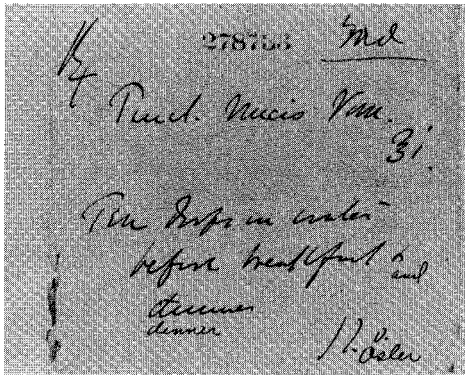 ℞ 278753 Md
Tinct. Nucis Vom.
ʒi.
Ten drops in water
before breakfast &
and
dinner
dinner
Osler